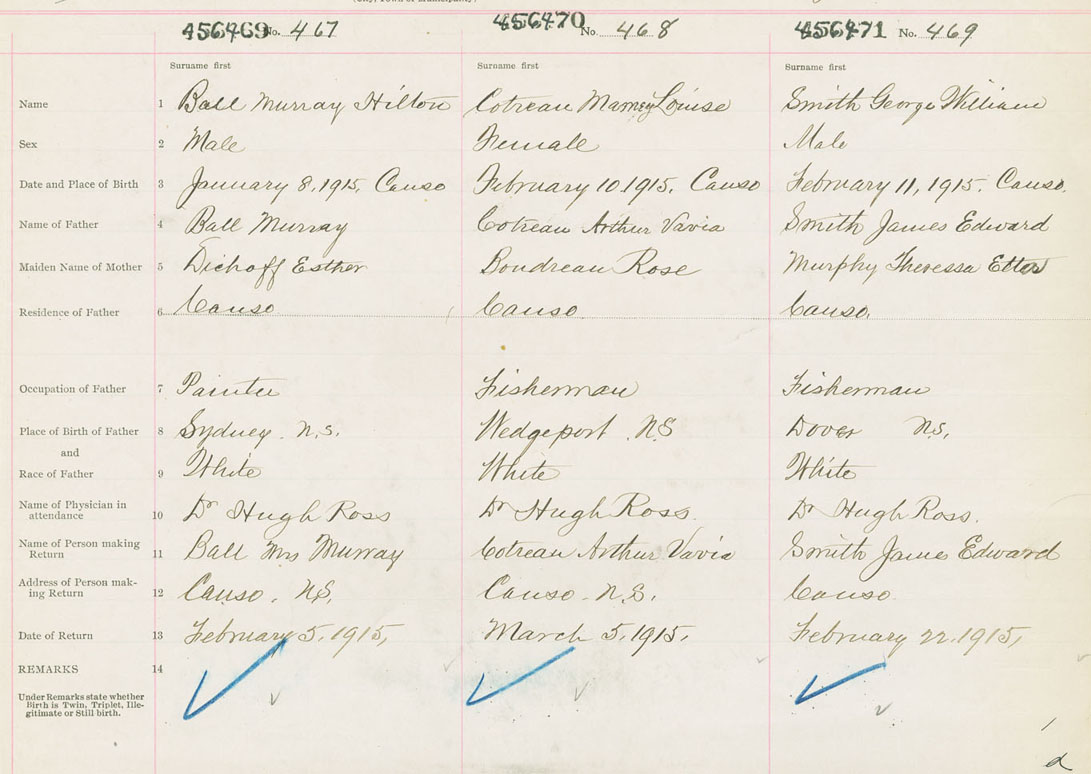 456469 No. 467 456470 No. 468 456471 No. 469
Surname first Surname first Surname first
Name 1 Ball Murray Hilton Cotreau Mamey Louise Smith George William
Sex 2 Male Female Male
Date and Place of Birth 3 January 8, 1915, Canso February 10 1915, Canso February 11, 1915. Canso.
Name of Father 4 Ball Murray Cotreau Arthur Vavia Smith James Edward
Maiden Name of Mother 5 Dichoff Esther Boudreau Rose Murphy Theressa
Residence of Father 6 Canso Canso Canso.
Occupation of Father 7 Painter Fisherman Fisherman
Place of Birth of Father 8 Sydney. N.S. Wedgeport. NS Dover NS.
and
Race of Father 9 White White White
Name of Physician in
attendance 10 Dr Hugh Ross Dr Hugh Ross. Dr Hugh Ross.
Name of Person making
Return 11 Ball Mrs Murray Cotreau Arthur Vavia Smith James Edward
Address of Person mak-
ing Return 12 Canso. NS. Canso. N.S. Canso
Date of Return 13 February 5, 1915, March 5, 1915. February 22. 1915,
REMARKS 14
Under Remarks state whether
Birth is Twin, Triplet, Ille-
gitimate or Still birth.